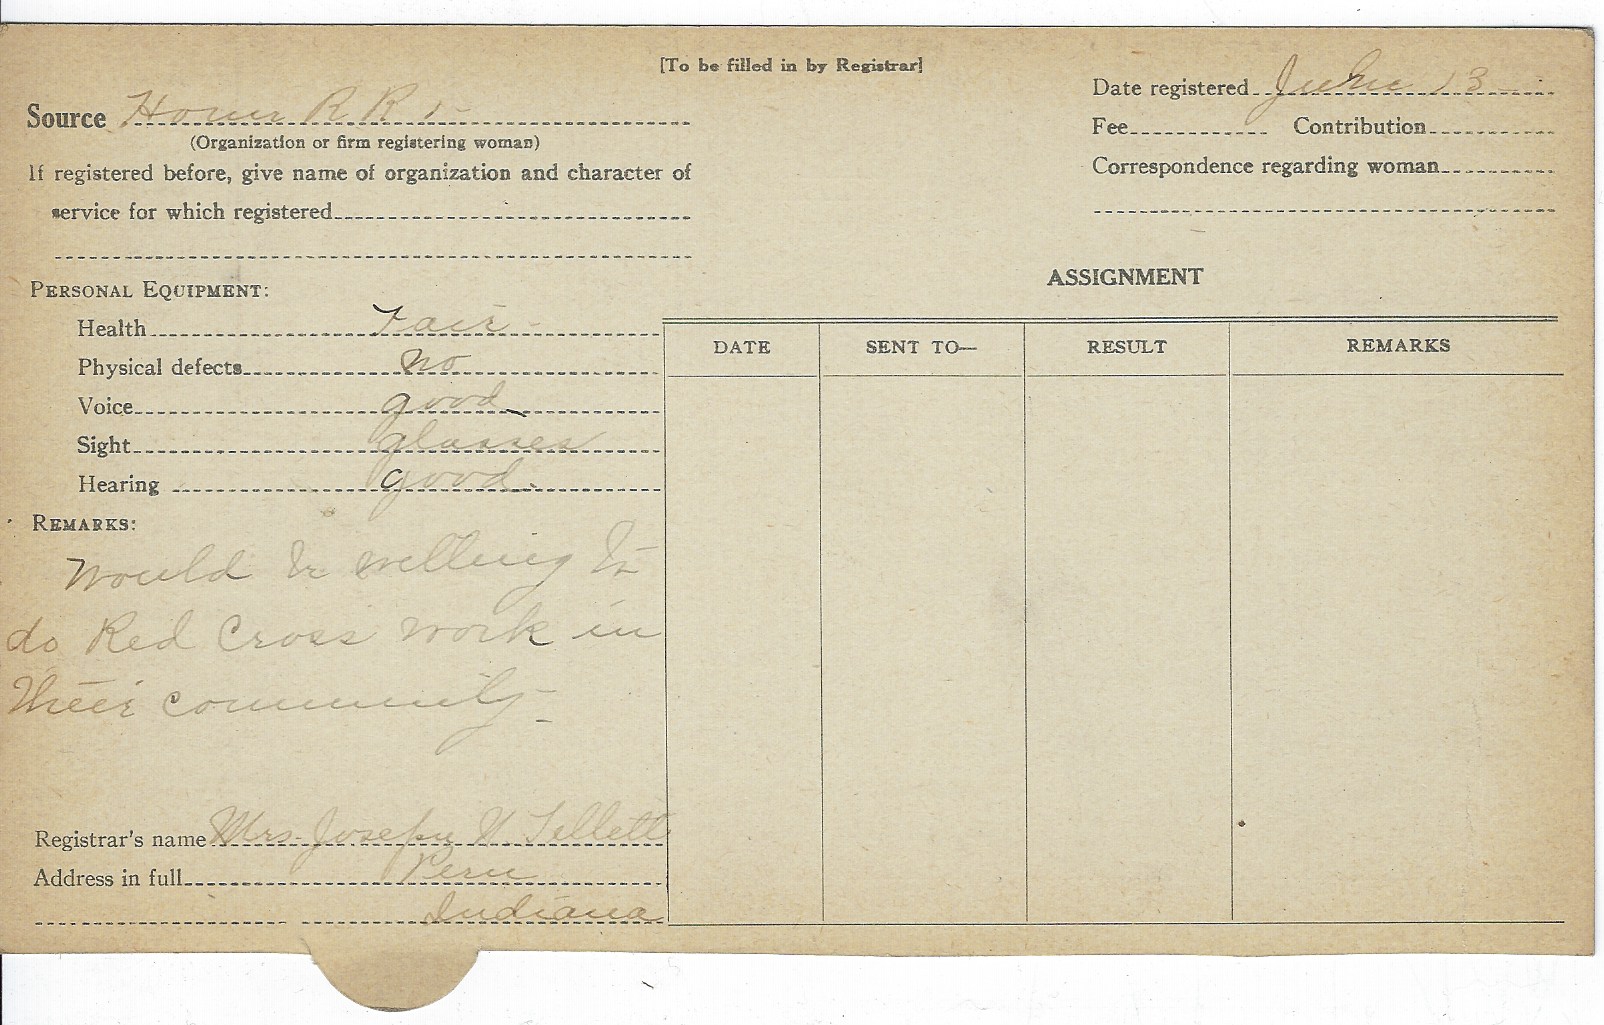 [To be filled in by Registrar]
Date registered June 13
Source R R 1
Fee Contribution
(Organization or firm registering woman)
Correspondence regarding woman
If registered before, give name of organization and character of
service for which registered
ASSIGNMENT
PERSONAL EQUIPMENT:
Health Fair
Physical defects no
Voice good
Sight glasses
Hearing good
DATE SENT TO— RESULT REMARKS
REMARKS:
Would be willing to
do Red Cross work in
their community
Registrar's name Mrs. Joseph N. Tillett
Address in full Peru
Indiana